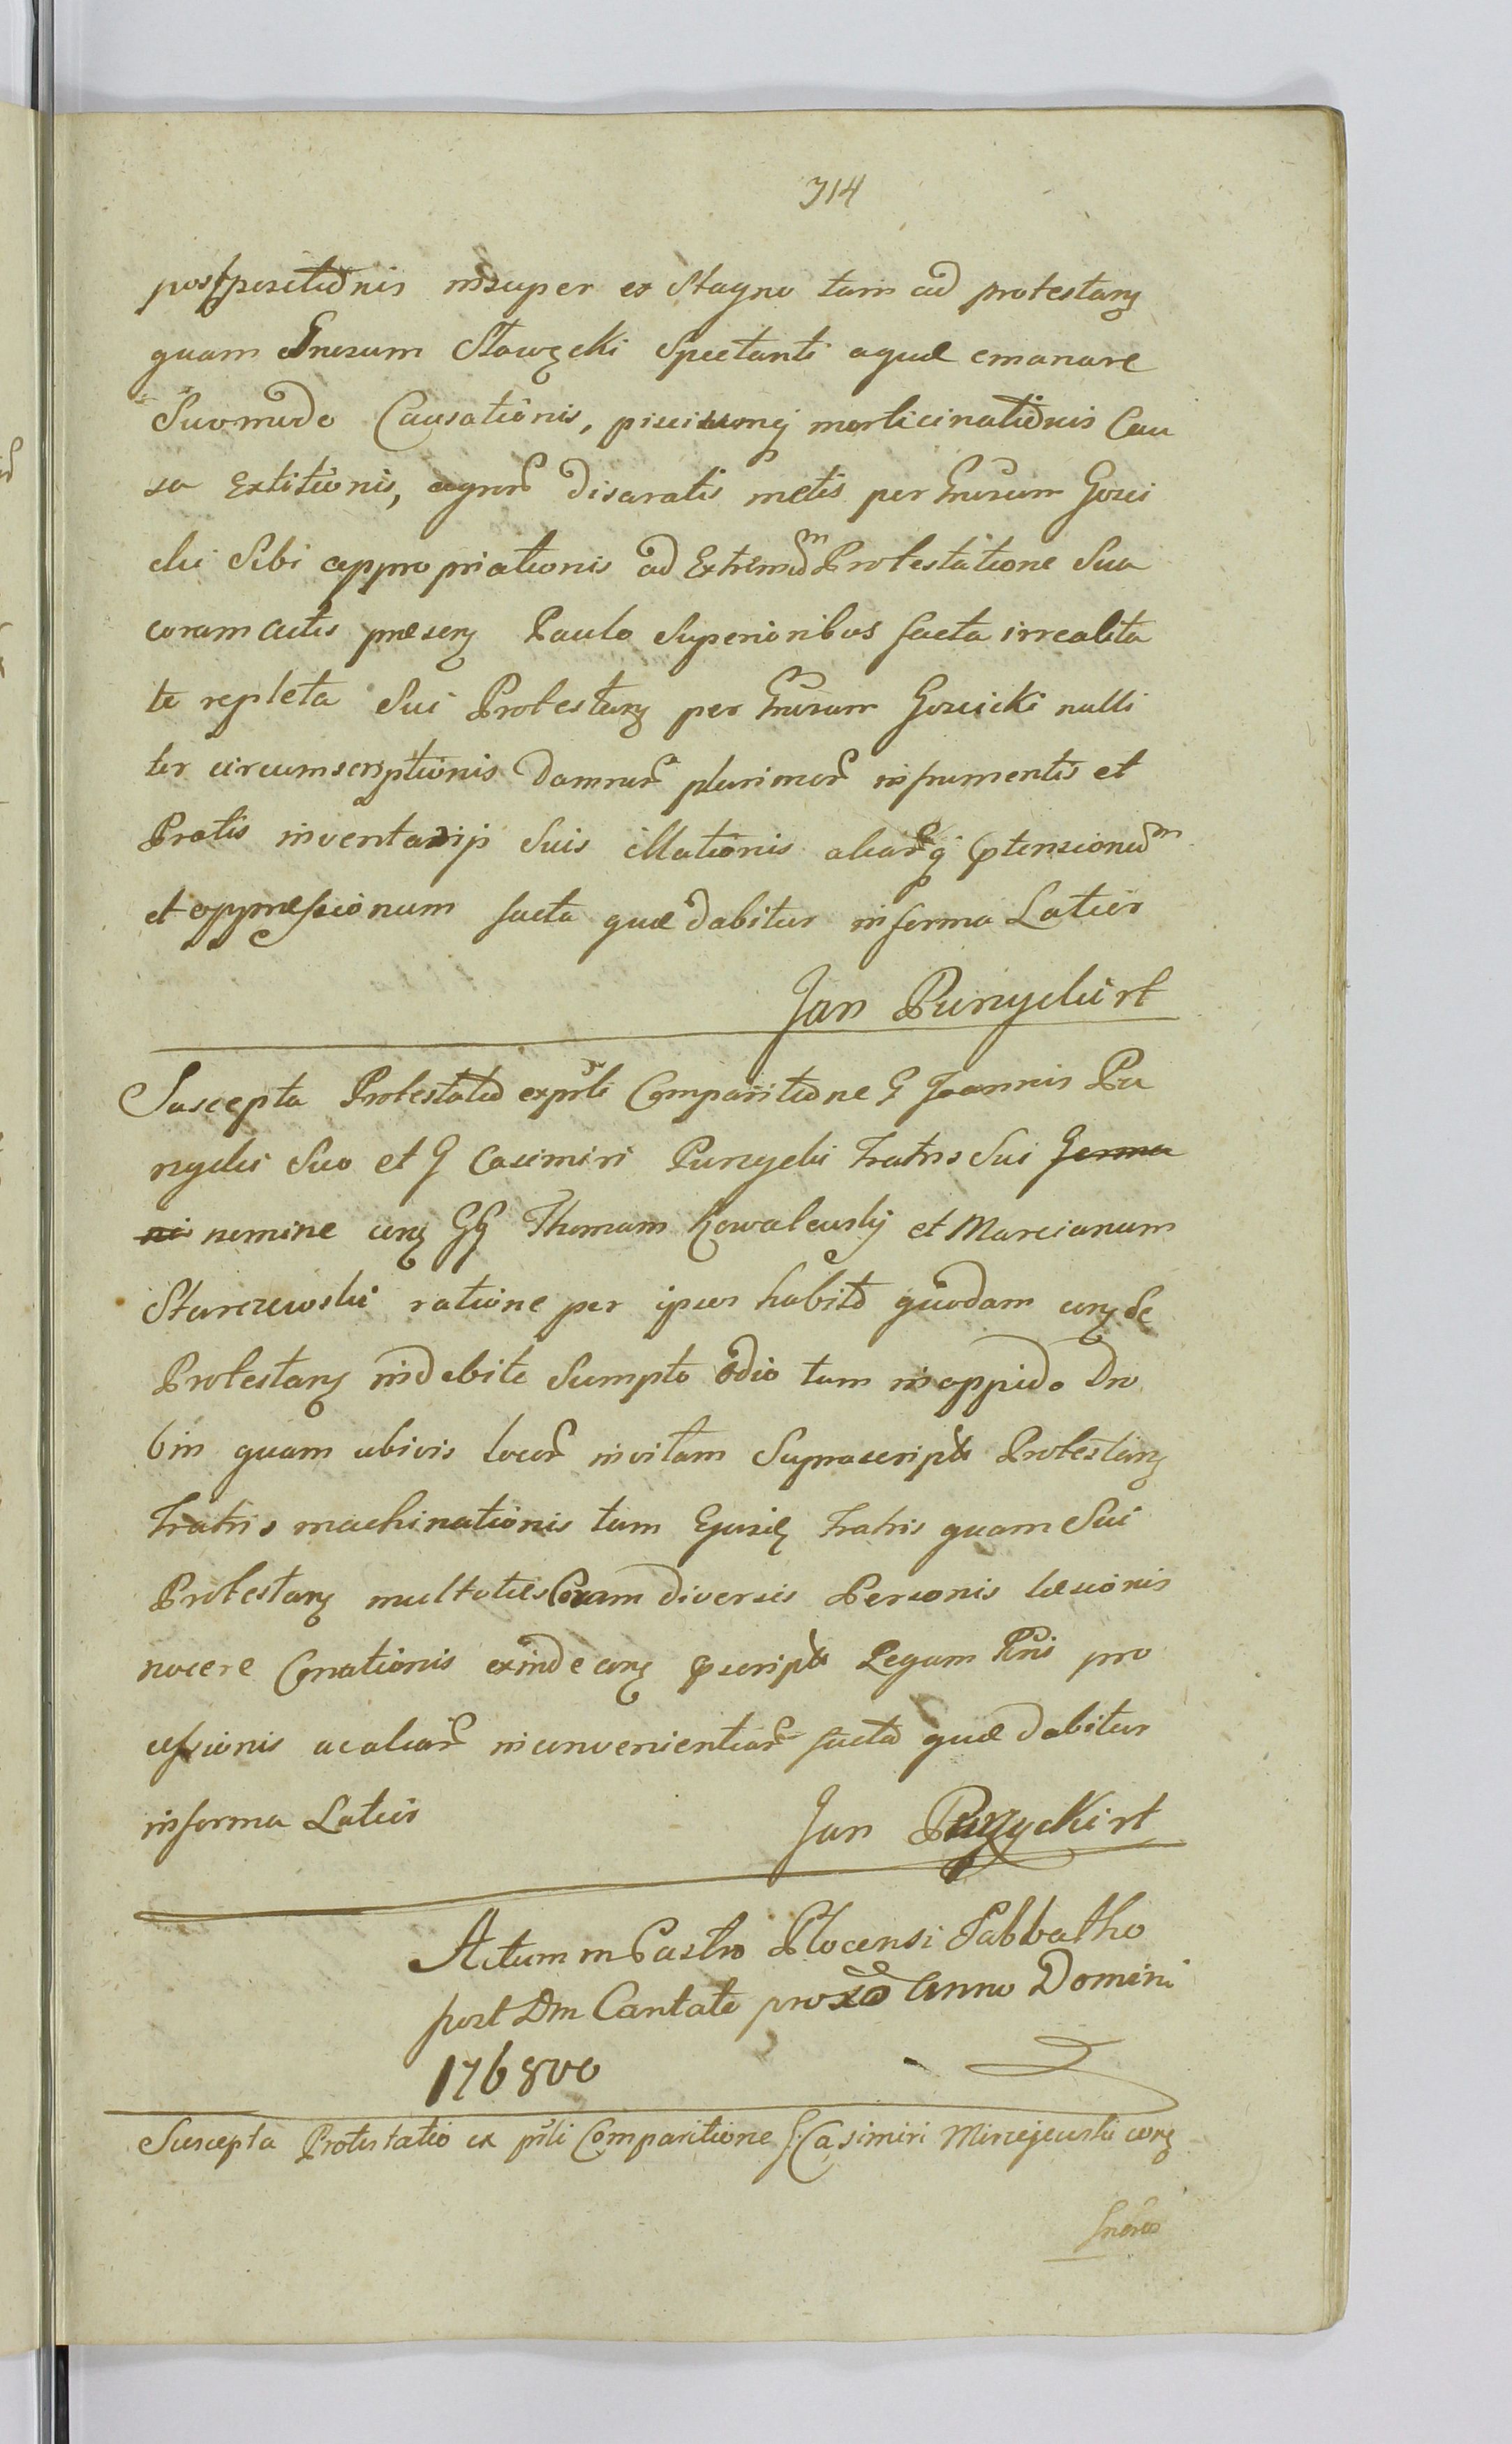 314
postpositionis insuper ex Stagno tam ad protestanz
quam Gnrsum Stawęcki Spectanti aquæ emanare
Suomodo Causationis, pisciumq morticinationis Cau
sa extitionis, agror disaratis metis per Gnrsum Gosci
cki Sibi appropriationis ad Extremum Protestatione Sua
coram actis præsenz Paulo Superioribus facta irrealita
te repleta Sui Protestanz per Gnrsum Goscicki nulli
ter circumscriptionis damnor plurimor in frumentis et
Pratis inventarijs Suis illationis aliarq ptensionum
et oppressionum facta quæ dabitur in forma Latior
Jan Purzycki rt
Suscepta Protestatio ex prsli Comparitione G Joannis Pu
rzycki Suo et G Casimiri Purzycki Fratris Sui Germa
ni nomine conz GG Thomam Kowalewskj et Marcianum
Starczewski ratione per ipsos habito quodam conz Se
Protestanz indebite Sumpto odio tam in oppido Dro
bin quam ubivis locor in vitam Suprascripti Protestanz
Fratris machinationis tam Ejusd Fratris quam Sui
Protestanz multoties Coram diversis Personis læsionis
nocere Conationis exinde conz pscripta Legum Rni pro
cessionis ac aliar inconvenientiar facta quæ dabitur
in forma Latior
Jan Purzycki rt
Actum in Castro Plocensi Sabbatho
post Dm Cantate proxo Anno Domini
1768vo
Suscepta Protestatio ex prsli Comparitione G. Casimiri Mirzejewski conz
Gnosos